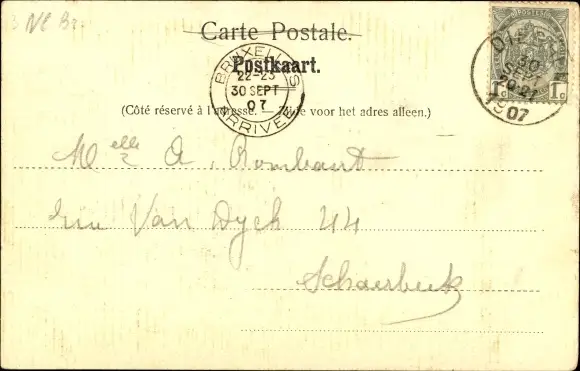 Carte Postale.
Postkaart.
BRUXELLES
22-23
30 SEPT
07
ARRIVEE
30
SEPT
20-21
1907
1c 1c
(Côté réservé à l'adresse. — Zijde voor het adres alleen.)
Melle A. Rombaut
rue Van Dyck 44
Schaerbeek